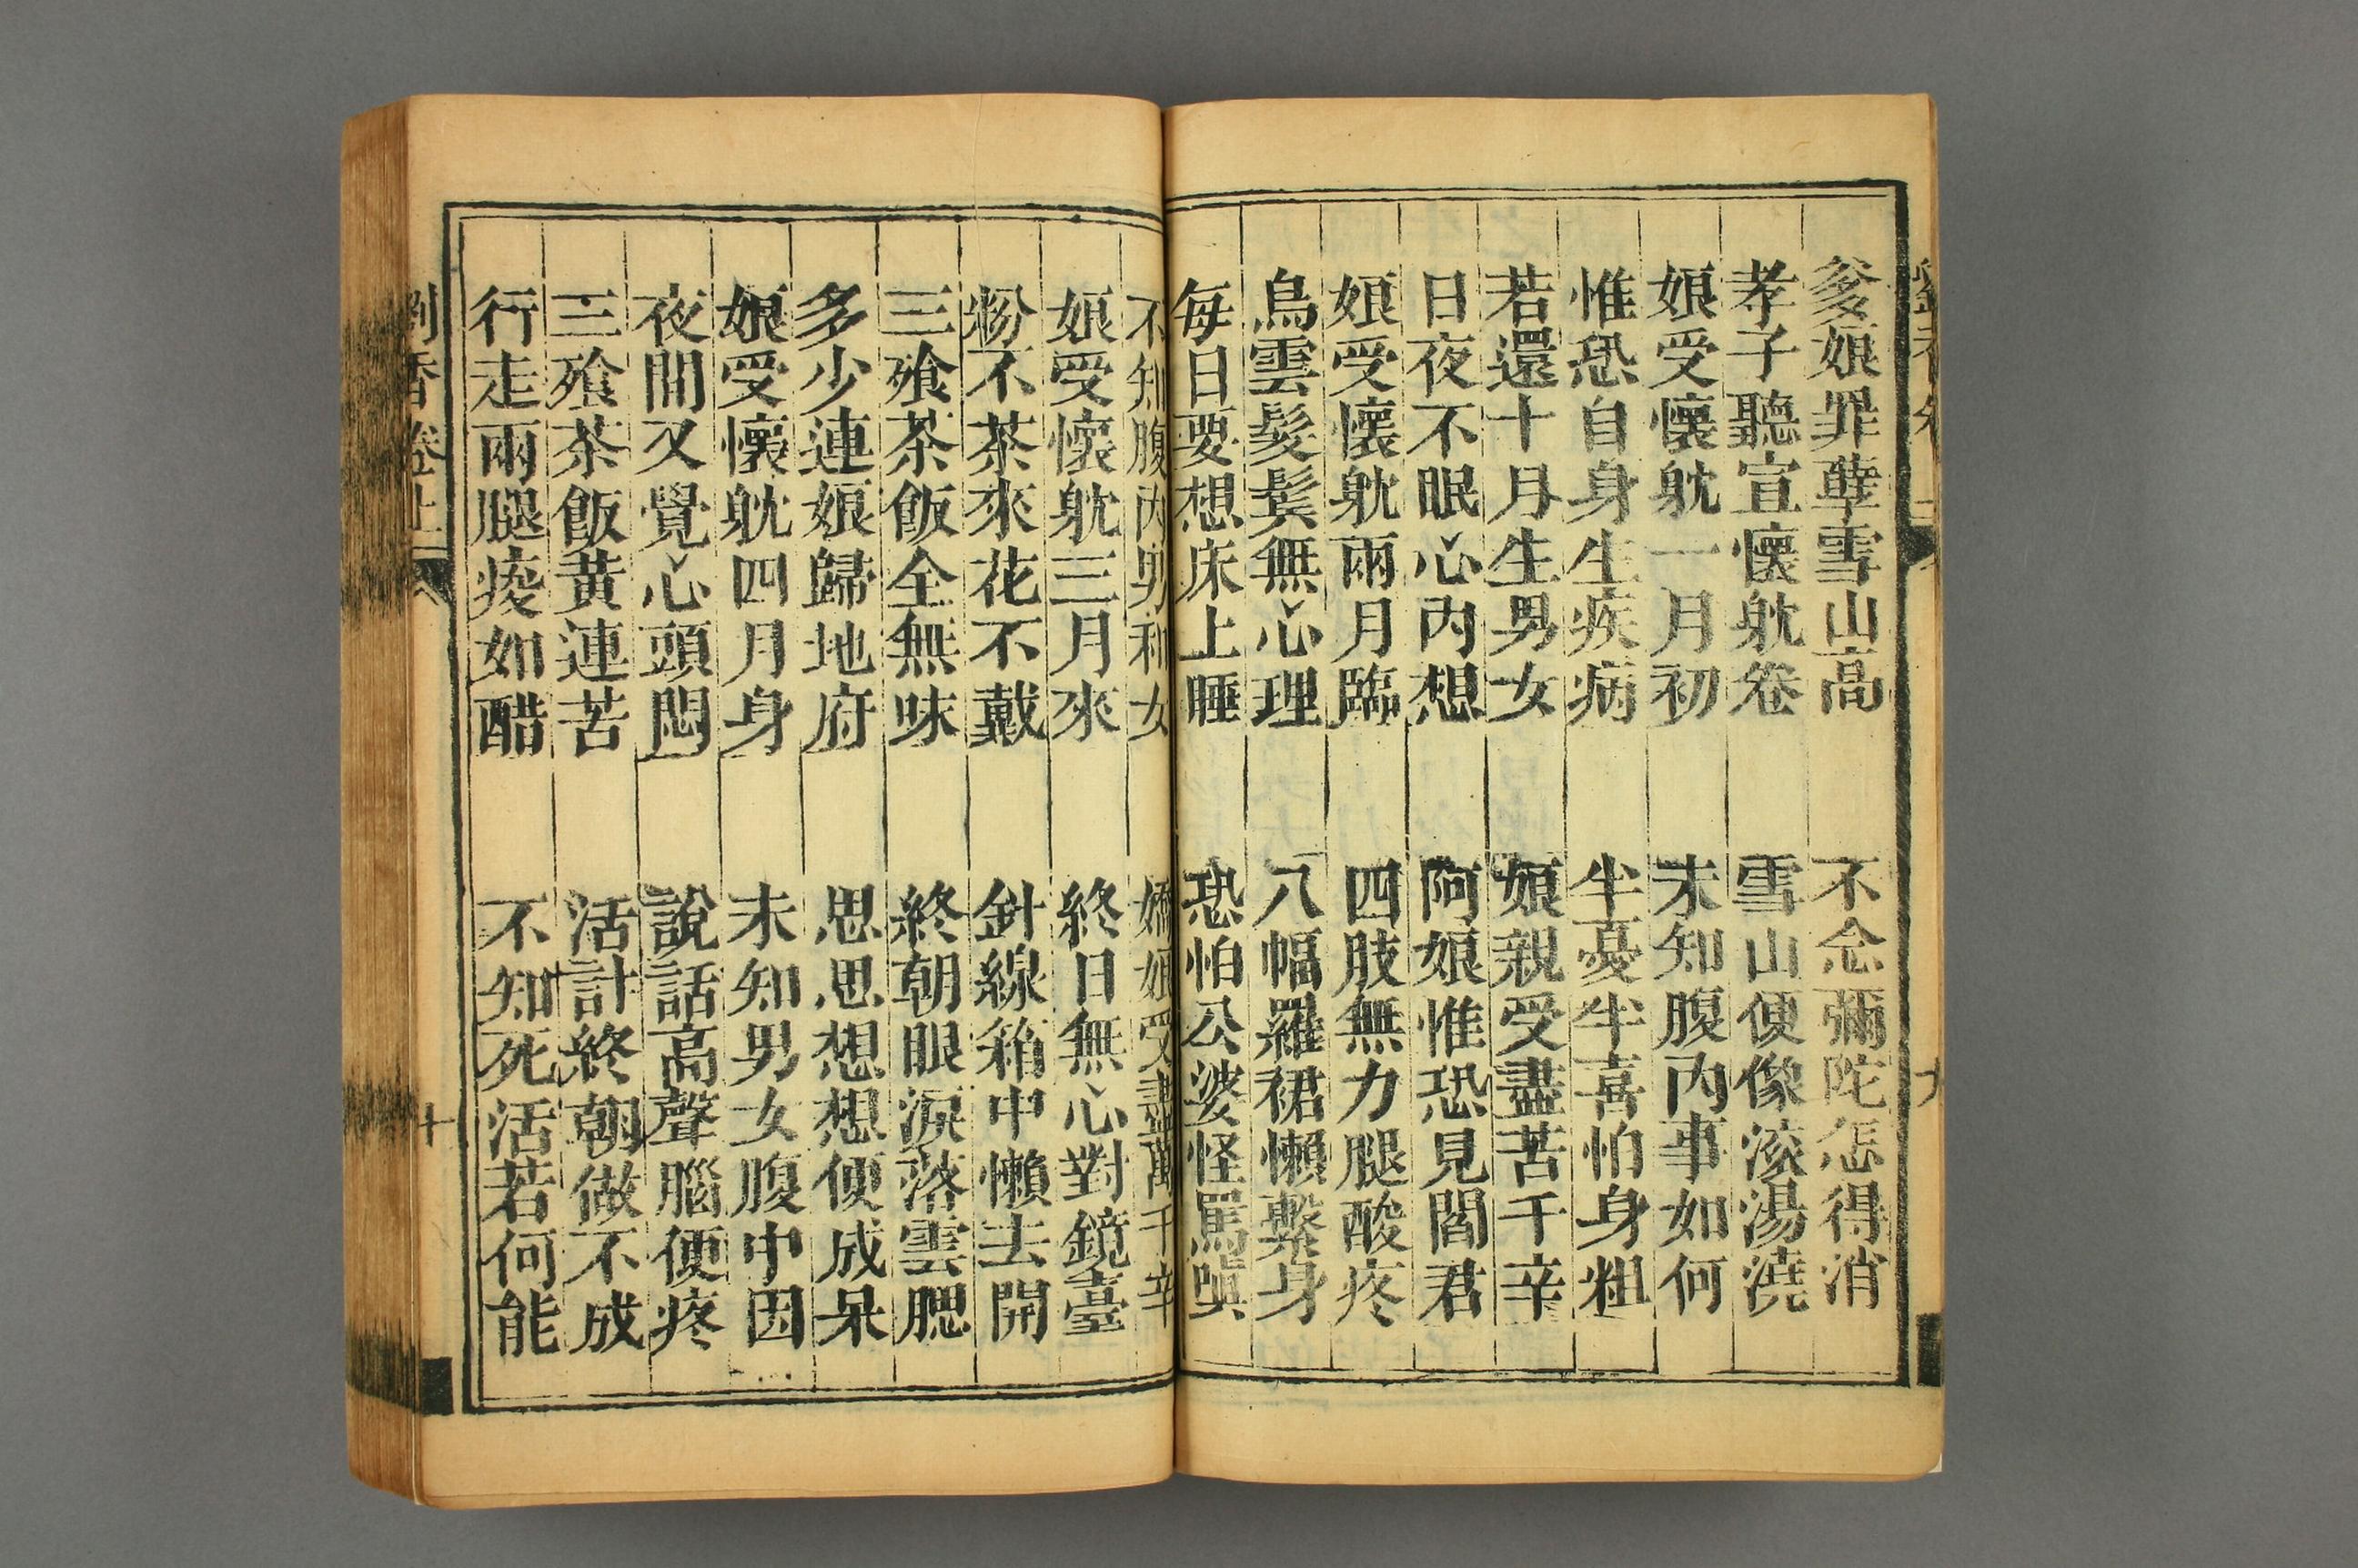 爹娘罪孽雪山高　不念彌陀怎得消
孝子聽宣懷躭卷　雪山便像滾湯澆
娘受懷躭一月初　未知腹內事如何
惟恐自身生疾病　半憂半喜怕身粗
若還十月生男女　娘親受盡苦千辛
日夜不眠心內想　阿娘惟恐見閻君
娘受懷躭兩月臨　四肢無力腿酸疼
烏雲髮鬂無心理　八幅羅裙懶繫身
每日要想床上睡　恐怕公婆怪罵嗔
九
不知腹內男和女　娇娘受盡萬千辛
娘受懷躭三月來　終日無心對鏡臺
粉不茶來花不戴　針線箱中懶去開
三飱茶飯全無味　終朝眼淚落雲腮
多少連娘歸地府　思思想想便成呆
娘受懷躭四月身　未知男女腹中因
夜間又覺心頭悶　說話高聲腦便疼
三飱茶飯黃連苦　活計終朝做不成
行走兩腿痠如醋　不知死活若何能
劉香卷上　十